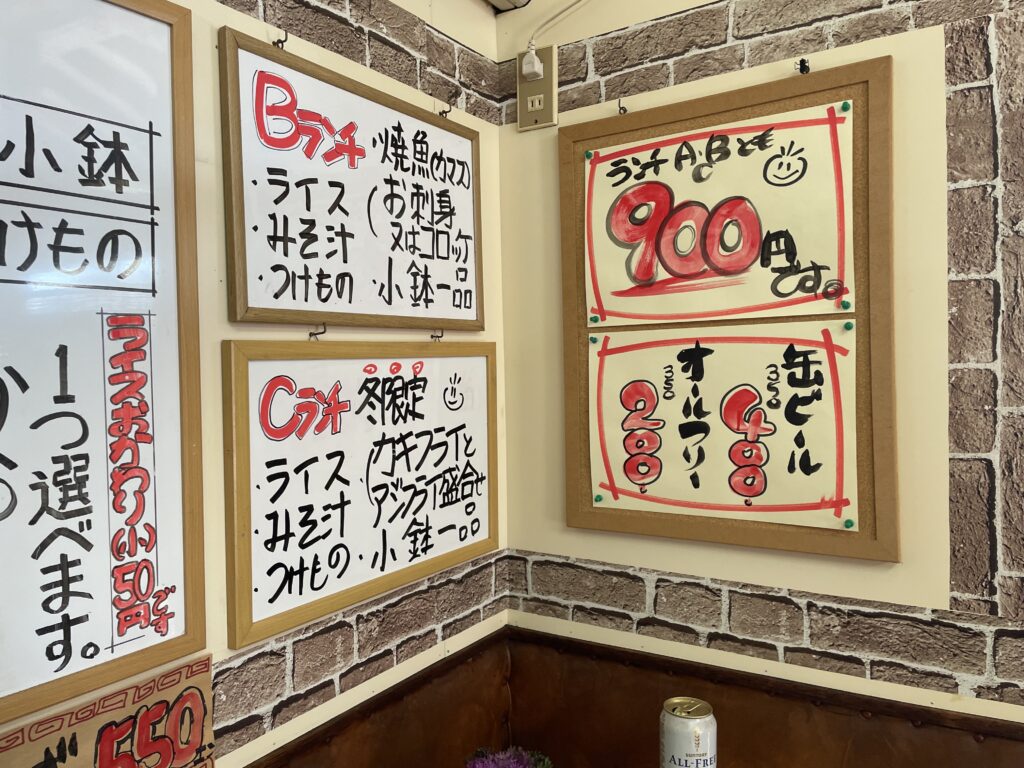 小鉢
つけもの
1つ選べます。
ライスおかわり(小)50円です
550
Bランチ
・ライス
・みそ汁
・つけもの
・焼魚(カマス)
(お刺身
又はコロッケ
・小鉢一品
Cランチ 冬限定
・ライス
・みそ汁
・つけもの
(カキフライと
アジフライ盛合せ
・小鉢一品
ランチA・B・Cとも
900円です。
缶ビール
350
400
オールフリー
350
200
SUNTORY
ALL-FREE